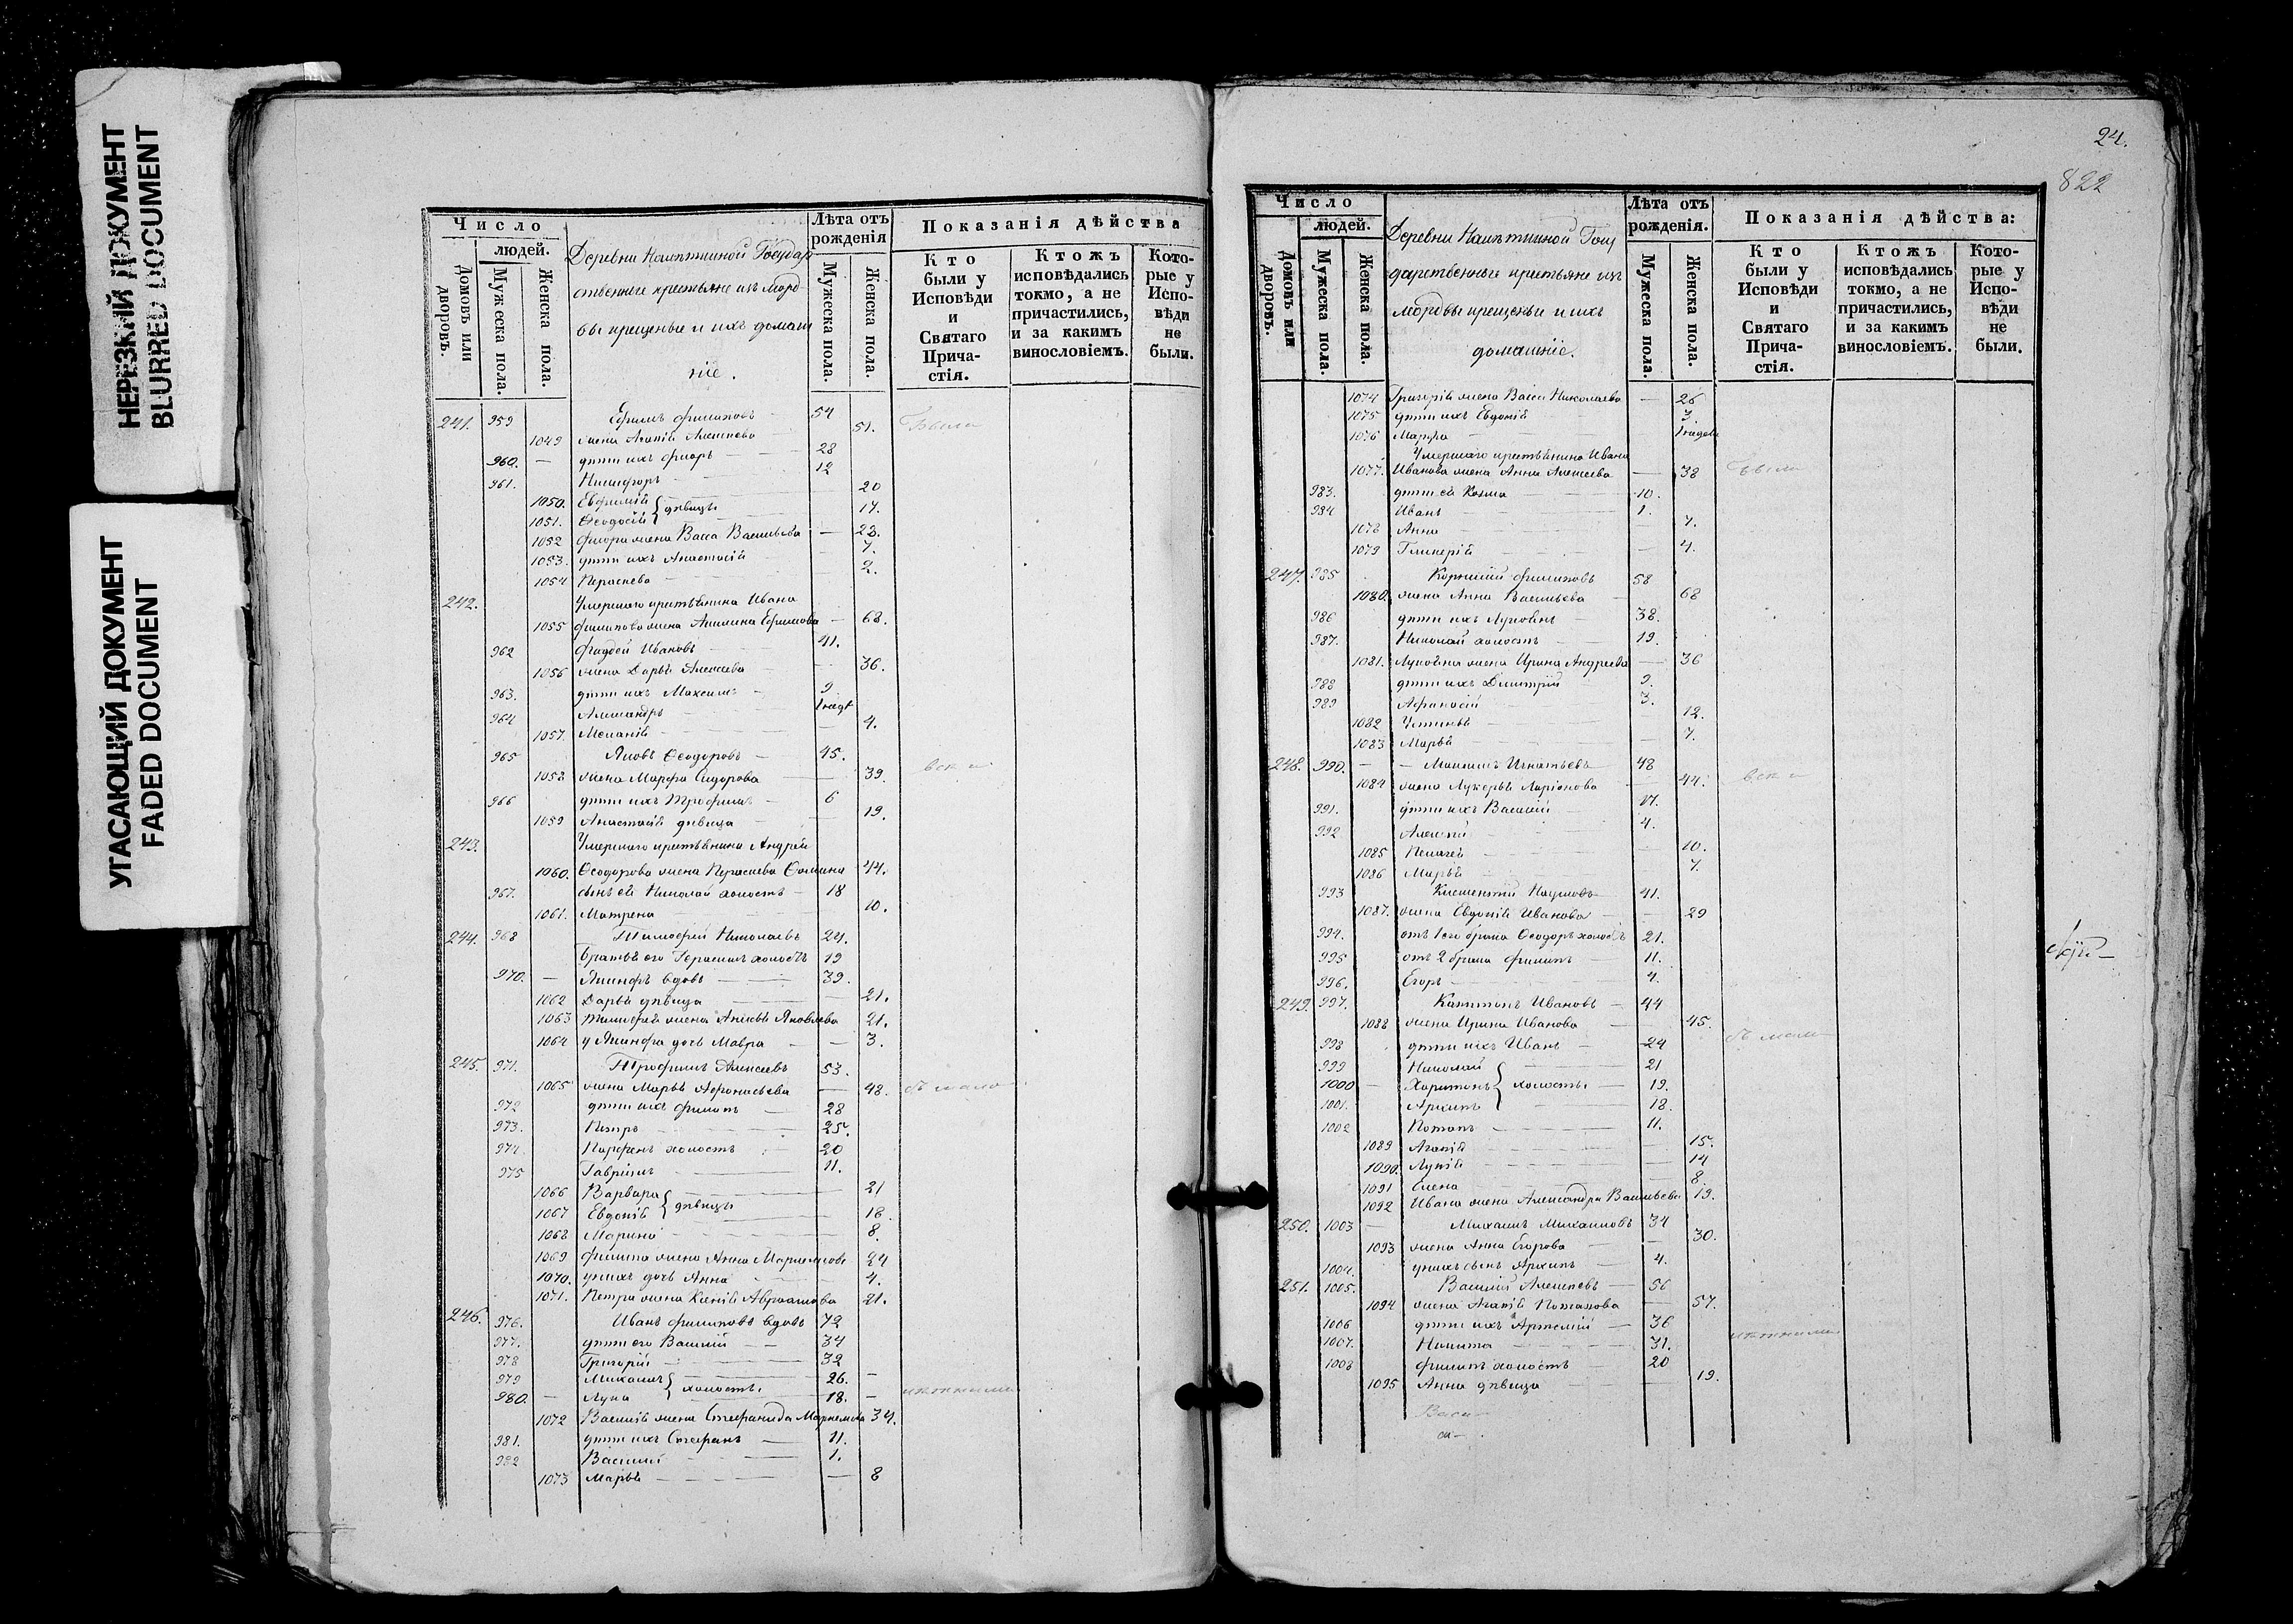 НЕРЕЗКИЙ ДОКУМЕНТ
BLURRED DOCUMENT
УГАСАЮЩИЙ ДОКУМЕНТ
FADED DOCUMENT
Число
людей.
Домовъ или дворовъ.
Мужеска пола.
Женска пола.
Деревни Государ
ственные крестьяне изъ Морд
вы крещеные и ихъ домаш
ніе.
Лѣта отъ рожденія
Мужеска пола.
Женска пола.
Показанія дѣйства
Кто были у Исповѣди и Святаго Прича-стія.
Ктожъ исповѣдались токмо, а не причастились, и за какимъ винословіемъ.
Кото-рые у Испо-вѣди не были.
241. 959 Ефимъ Филиповъ 54
1049 жена Агапія 51.
960. дѣти ихъ Флоръ 28
961. Никифоръ 12
1050. Евфимія 20
1051. Ѳеодосія } дѣвицы 17.
1052 Флора жена Васса Васильева 23.
1053. дѣти ихъ Анастасія 7.
1054 Парасκева 2.
242. Умершаго крестьянина Ивана
1055 Филипова жена Акилина Ефимова 68.
962 Фаддей Ивановъ 41.
1056 жена Дарья Алексеева 36.
963. дѣти ихъ Максимъ 9
964 Александръ
1057. Меланія 4.
965 Яковъ Ѳеодоровъ 45.
1058 жена Марфа Сидорова 39.
966 дѣти ихъ Трофимъ 6
1059 Анастасія дѣвица 19.
243. Умершаго крестьянина Андрея
1060. Ѳеодорова жена Параскева Ѳомина 44.
967. сынъ ея Николай холостъ 18
1061. Матрена 10.
244. 968 Тимофей Николаевъ 24.
Братья его Герасимъ холостъ 19
970. Якинфъ вдовъ 39.
1062 Дарья дѣвица 21.
1063 Тимофея жена Яковлева 21.
1064 у Якинфа дочь Мавра 3.
245. 971. Трофимъ Алексеевъ 53.
1065 жена Марья Афонасьева 48.
972 дѣти ихъ Филипъ 28
973. Петръ 25.
974. Парфенъ холостъ 20
975 Гавріилъ 11.
1066 Варвара 21
1067 Евдокія } дѣвицы 18.
1068 Марина 8.
1069 Филипа жена Анна 24
1070. у нихъ дочь Анна 4.
1071. Петра жена Ксенія Авраамова 21.
246. 976. Иванъ Филиповъ вдовъ 72
977. дѣти его Василій 34
978 Григорій 32
979 Михаилъ 26.
980. Лука } холосты 18.
1072 Василія жена Стефанида 34.
981. дѣти ихъ Стефанъ 11.
982 Василій 1.
1073 Марья 8
24.
822
Число
людей.
Домовъ или дворовъ.
Мужеска пола.
Женска пола.
Деревни Госу
дарственные крестьяне изъ
Мордвы крещеные и ихъ
домашніе.
Лѣта отъ рожденія.
Мужеска пола.
Женска пола.
Показанія дѣйства:
Кто были у Исповѣди и Святаго Прича-стія.
Ктожъ исповѣдались токмо, а не причастились, и за какимъ винословіемъ.
Кото-рые у Испо-вѣди не были.
1074 Григорія жена Васса Николаева 26
1075 дѣти ихъ Евдокія 3
1076 Марфа
Умершаго крестьянина Ивана
1077. Иванова жена Анна Алексеева 38
983. дѣти ея Козма 10.
984 Иванъ 1.
1078 Анна 7.
1079 Гликерія 4.
247. 985 Корнилій Филиповъ 58
1080. жена Анна Васильева 68
986 дѣти ихъ Лукоянъ 38.
987. Николай холостъ 19.
1081. Лукояна жена Ирина Андреева 36
988 дѣти ихъ Димитрій 9.
989 Афанасій 3.
1082 Устинья 12.
1083 Марья 7.
248. 990. Максимъ Игнатьевъ 48
1084 жена Лукерья Ларіонова 44.
991. дѣти ихъ Василій 17.
992 Алексей 4.
1085 Пелагея 10.
1086 Марья 7.
993 Климентій Наумовъ 41.
1087. жена Евдокія Иванова 29
994. отъ 1го брака Ѳеодоръ холостъ 21.
995 отъ 2 брака Филипъ 11.
996. Егоръ 4.
249. 997. Капитонъ Ивановъ 44
1088 жена Ирина Иванова 45.
998 дѣти ихъ Иванъ 24
999 Николай 21
1000 Харитонъ } холосты 19.
1001. Архипъ 18.
1002 Потапъ 11.
1089 Агапія 15.
1090. Лукія 14
1091 Елена 8.
1092 Ивана жена Александра Васильева 19.
250. 1003 Михаилъ Михаиловъ 34
1093 жена Анна Егорова 30.
1004. у нихъ сынъ Архипъ 4.
251. 1005. Василій Алексеевъ 56
1094 жена Агапія Потапова 57.
1006 дѣти ихъ Артемій 36
1007. Никита 31.
1008 Филипъ холостъ 20
1095 Анна дѣвица 19.